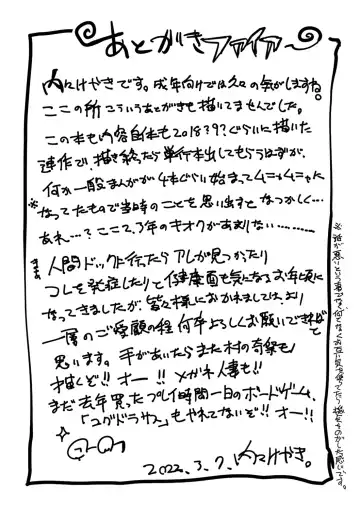 あとがきファイアー
内々けやきです。成年向けでは久々の気がしますね。
ここの所こういうあとがきも描いてませんでした。
この本も内容自体も2018??ぐらいに描いた
連作で、描き終ったら単行本出してもらうはずが、
何か一般まんがが4本ぐらい始まってムニャムニャに
なってたもので当時のことを思い出すとなつかしく…
あれ…?ここ2、3年のキオクがあまりない………
人間ドックに行ったらアレが見つかったり
コレを発症したりと健康面も気になるお年頃に
なってきましたが、皆々様におかれましては、より
一層のご愛顧の程何卒よろしくお願いできればと
思います。手があいたらまた村の奇祭も
描くぞ!!オー!!メガネ人妻も!!
まだ去年買ったプレイ時間一日のボードゲーム、
「ユグドラサス」もやれてないぞ!!オー!!
2022.3.7.内々けやき。